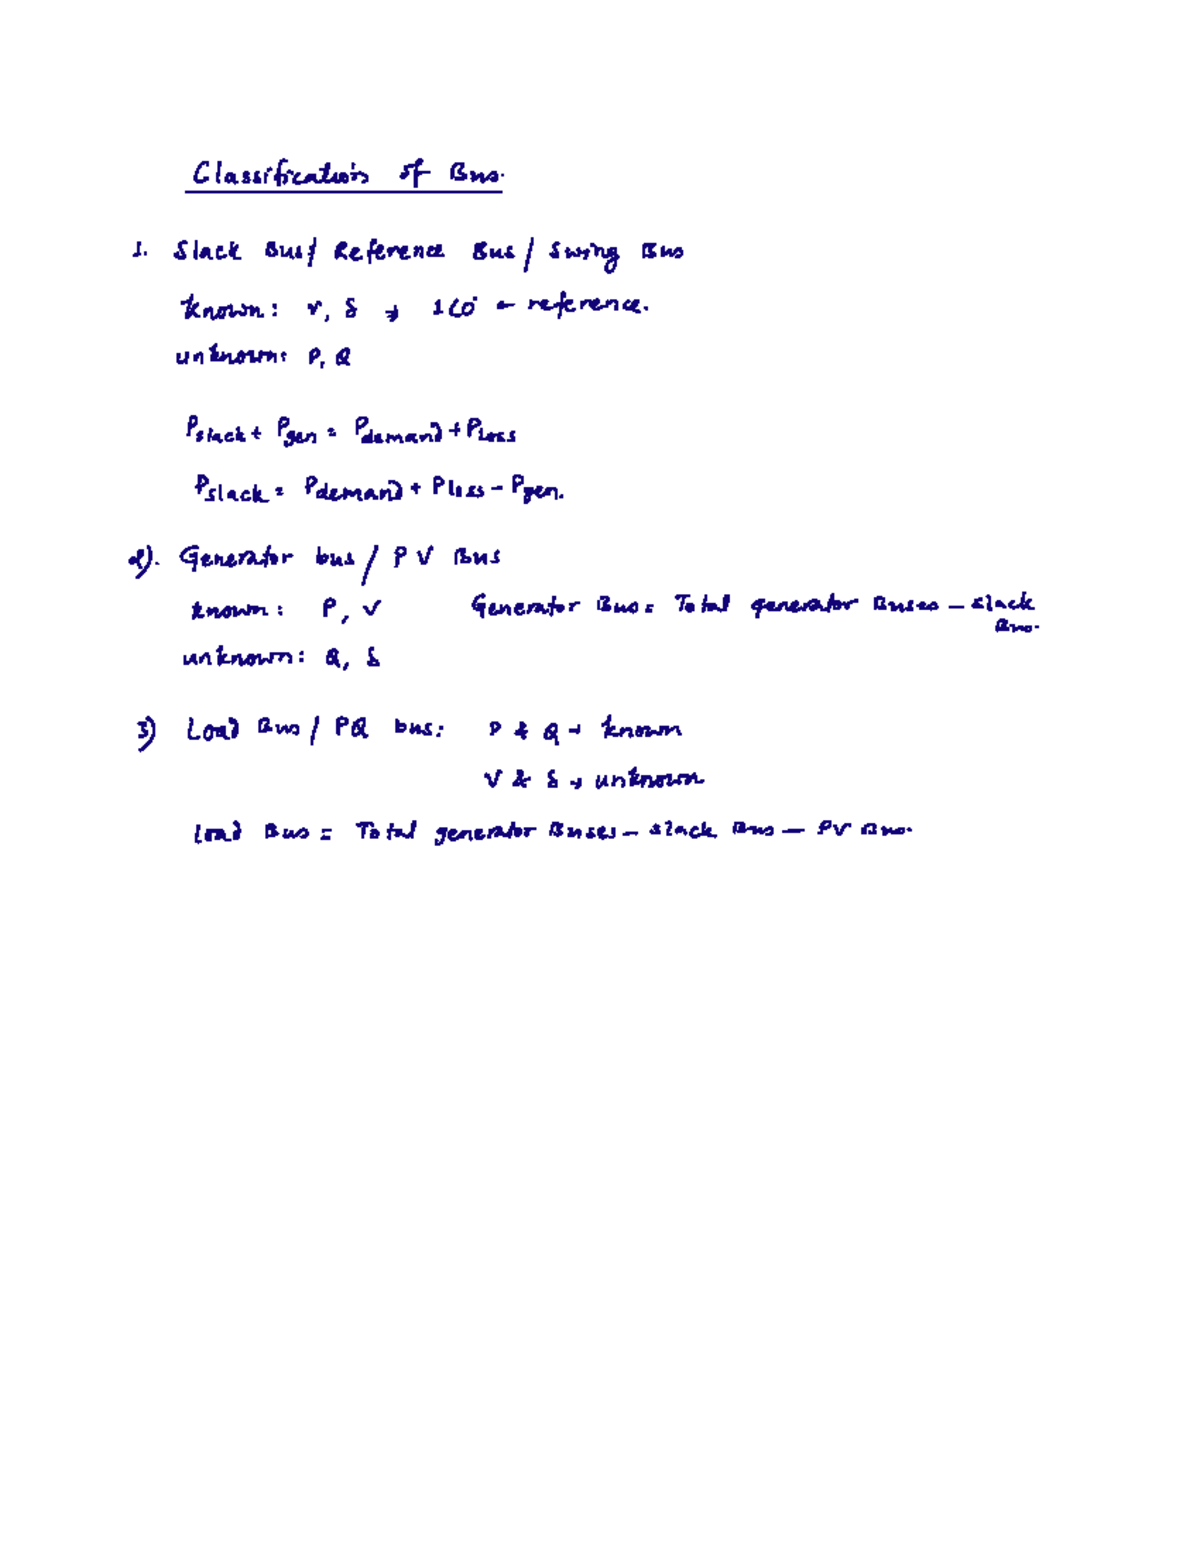 Classification of Bus.
1. Slack Bus/ Reference Bus / Swing Bus
known: V, δ → 1∠0° ← reference.
unknown: P, Q
Pslack + Pgen = Pdemand + Ploss
Pslack = Pdemand + Ploss - Pgen.
2). Generator bus / PV Bus
known: P, V Generator Bus = Total generator Buses - slack Bus.
unknown: Q, δ
3) Load Bus / PQ bus: P & Q → known
V & δ → unknown
Load Bus = Total generator Buses - slack Bus - PV Bus.